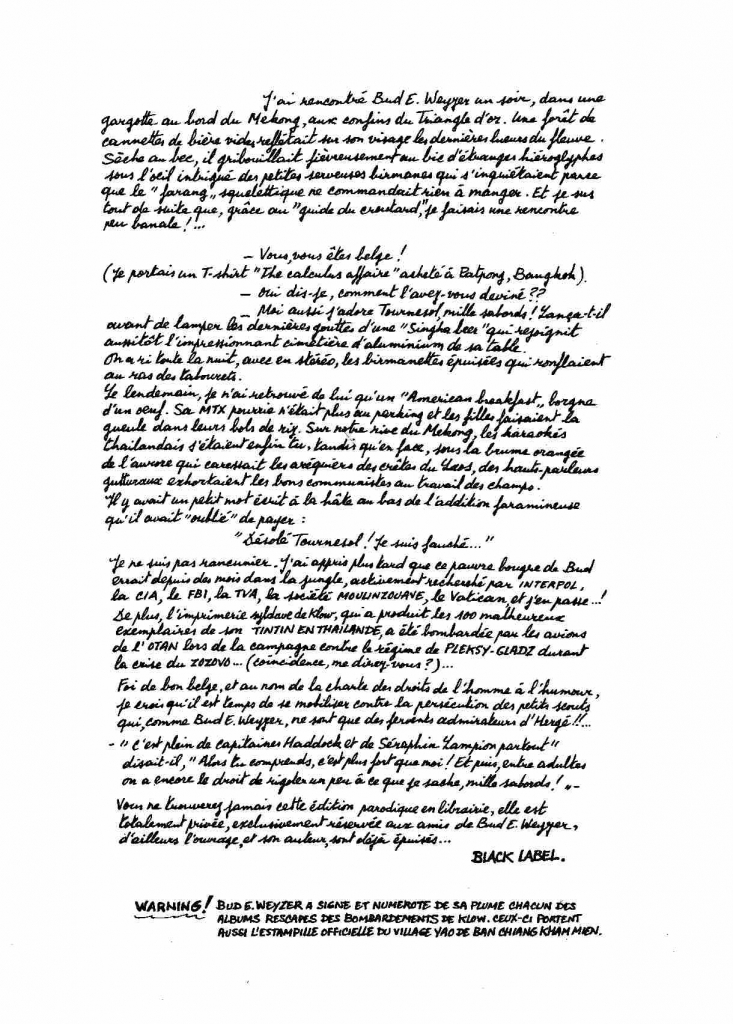 J'ai rencontré Bud E. Weyzer un soir, dans une
gargotte au bord du Mekong, aux confins du Triangle d'or. Une forêt de
cannettes de bière vides reflétait sur son visage les dernières lueurs du fleuve.
Sèche au bec, il gribouillait fièvreusement au bic d'étranges hiéroglyphes
sous l'œil intrigué des petites serveuses birmanes qui s'inquiétaient parce
que le "farang" squelettique ne commandait rien à manger. Et je sus
tout de suite que, grâce au "guide du croutard", je faisais une rencontre
peu banale !...
– Vous, vous êtes belge !
(Je portais un T-shirt "The calculus affaire" acheté à Patpong, Bangkok).
– Oui dis-je, comment l'avez-vous deviné ??
– Moi aussi j'adore Tournesol, mille sabords ! Lança-t-il
avant de lamper les dernières gouttes d'une "Singha beer" qui rejoignit
aussitôt l'impressionnant cimetière d'aluminium de sa table.
On a ri toute la nuit, avec en stéréo, les birmanettes épuisées qui ronflaient
au ras des tabourets.
Le lendemain, je n'ai retrouvé de lui qu'un "American breakfast" borgne
d'un oeuf. Sa MTX pourrie n'était plus au parking et les filles faisaient la
gueule dans leurs bols de riz. Sur notre rive du Mekong, les karaokés
thaïlandais s'étaient enfin tu, tandis qu'en face, sous la brume orangée
de l'aurore qui caressait les aréquiers des crêtes du Laos, des hauts-parleurs
gutturaux exhortaient les bons communistes au travail des champs.
Il y avait un petit mot écrit à la hâte au bas de l'addition faramineuse
qu'il avait "oublié" de payer :
"Désolé Tournesol ! Je suis fauché..."
Je ne suis pas rancunier. J'ai appris plus tard que ce pauvre bougre de Bud
errait depuis des mois dans la jungle, activement recherché par INTERPOL,
la CIA, le FBI, la TVA, la société MOULINZOUAVE, le Vatican et j'en passe...!
De plus, l'imprimerie syldave de Klow, qui a produit les 100 malheureux
exemplaires de son TINTIN EN THAILANDE, a été bombardée par les avions
de l'OTAN lors de la campagne contre le régime de PLEKSY-GLADZ durant
la crise du ZOZOVO... (coïncidence, me direz-vous ?)...
Foi de bon belge, et au nom de la charte des droits de l'homme à l'humour,
je crois qu'il est temps de se mobiliser contre la persécution des petits scouts
qui, comme Bud E. Weyzer, ne sont que des fervents admirateurs d'Hergé !!...
– "C'est plein de capitaines Haddock et de Séraphin Lampion partout"
disait-il, "Alors tu comprends, c'est plus fort que moi ! Et puis, entre adultes
on a encore le droit de rigoler un peu à ce que je sache, mille sabords !" –
Vous ne trouverez jamais cette édition parodique en librairie, elle est
totalement privée, exclusivement réservée aux amis de Bud E. Weyzer,
d'ailleurs l'ouvrage, et son auteur, sont déjà épuisés...
BLACK LABEL.
WARNING! BUD E. WEYZER A SIGNE ET NUMEROTE DE SA PLUME CHACUN DES
ALBUMS RESCAPES DES BOMBARDEMENTS DE KLOW. CEUX-CI PORTENT
AUSSI L'ESTAMPILLE OFFICIELLE DU VILLAGE YAO DE BAN CHIANG KHAM MIEN.